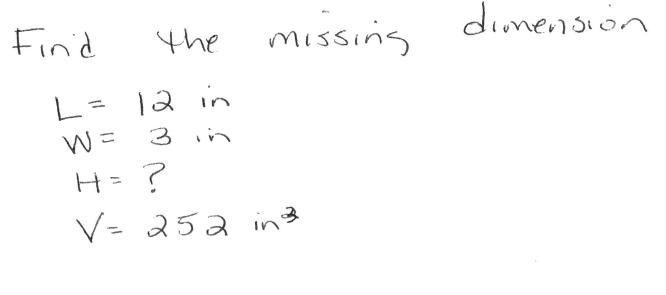 Find the missing dimension
L = 12 in
W = 3 in
H = ?
V = 252 in³